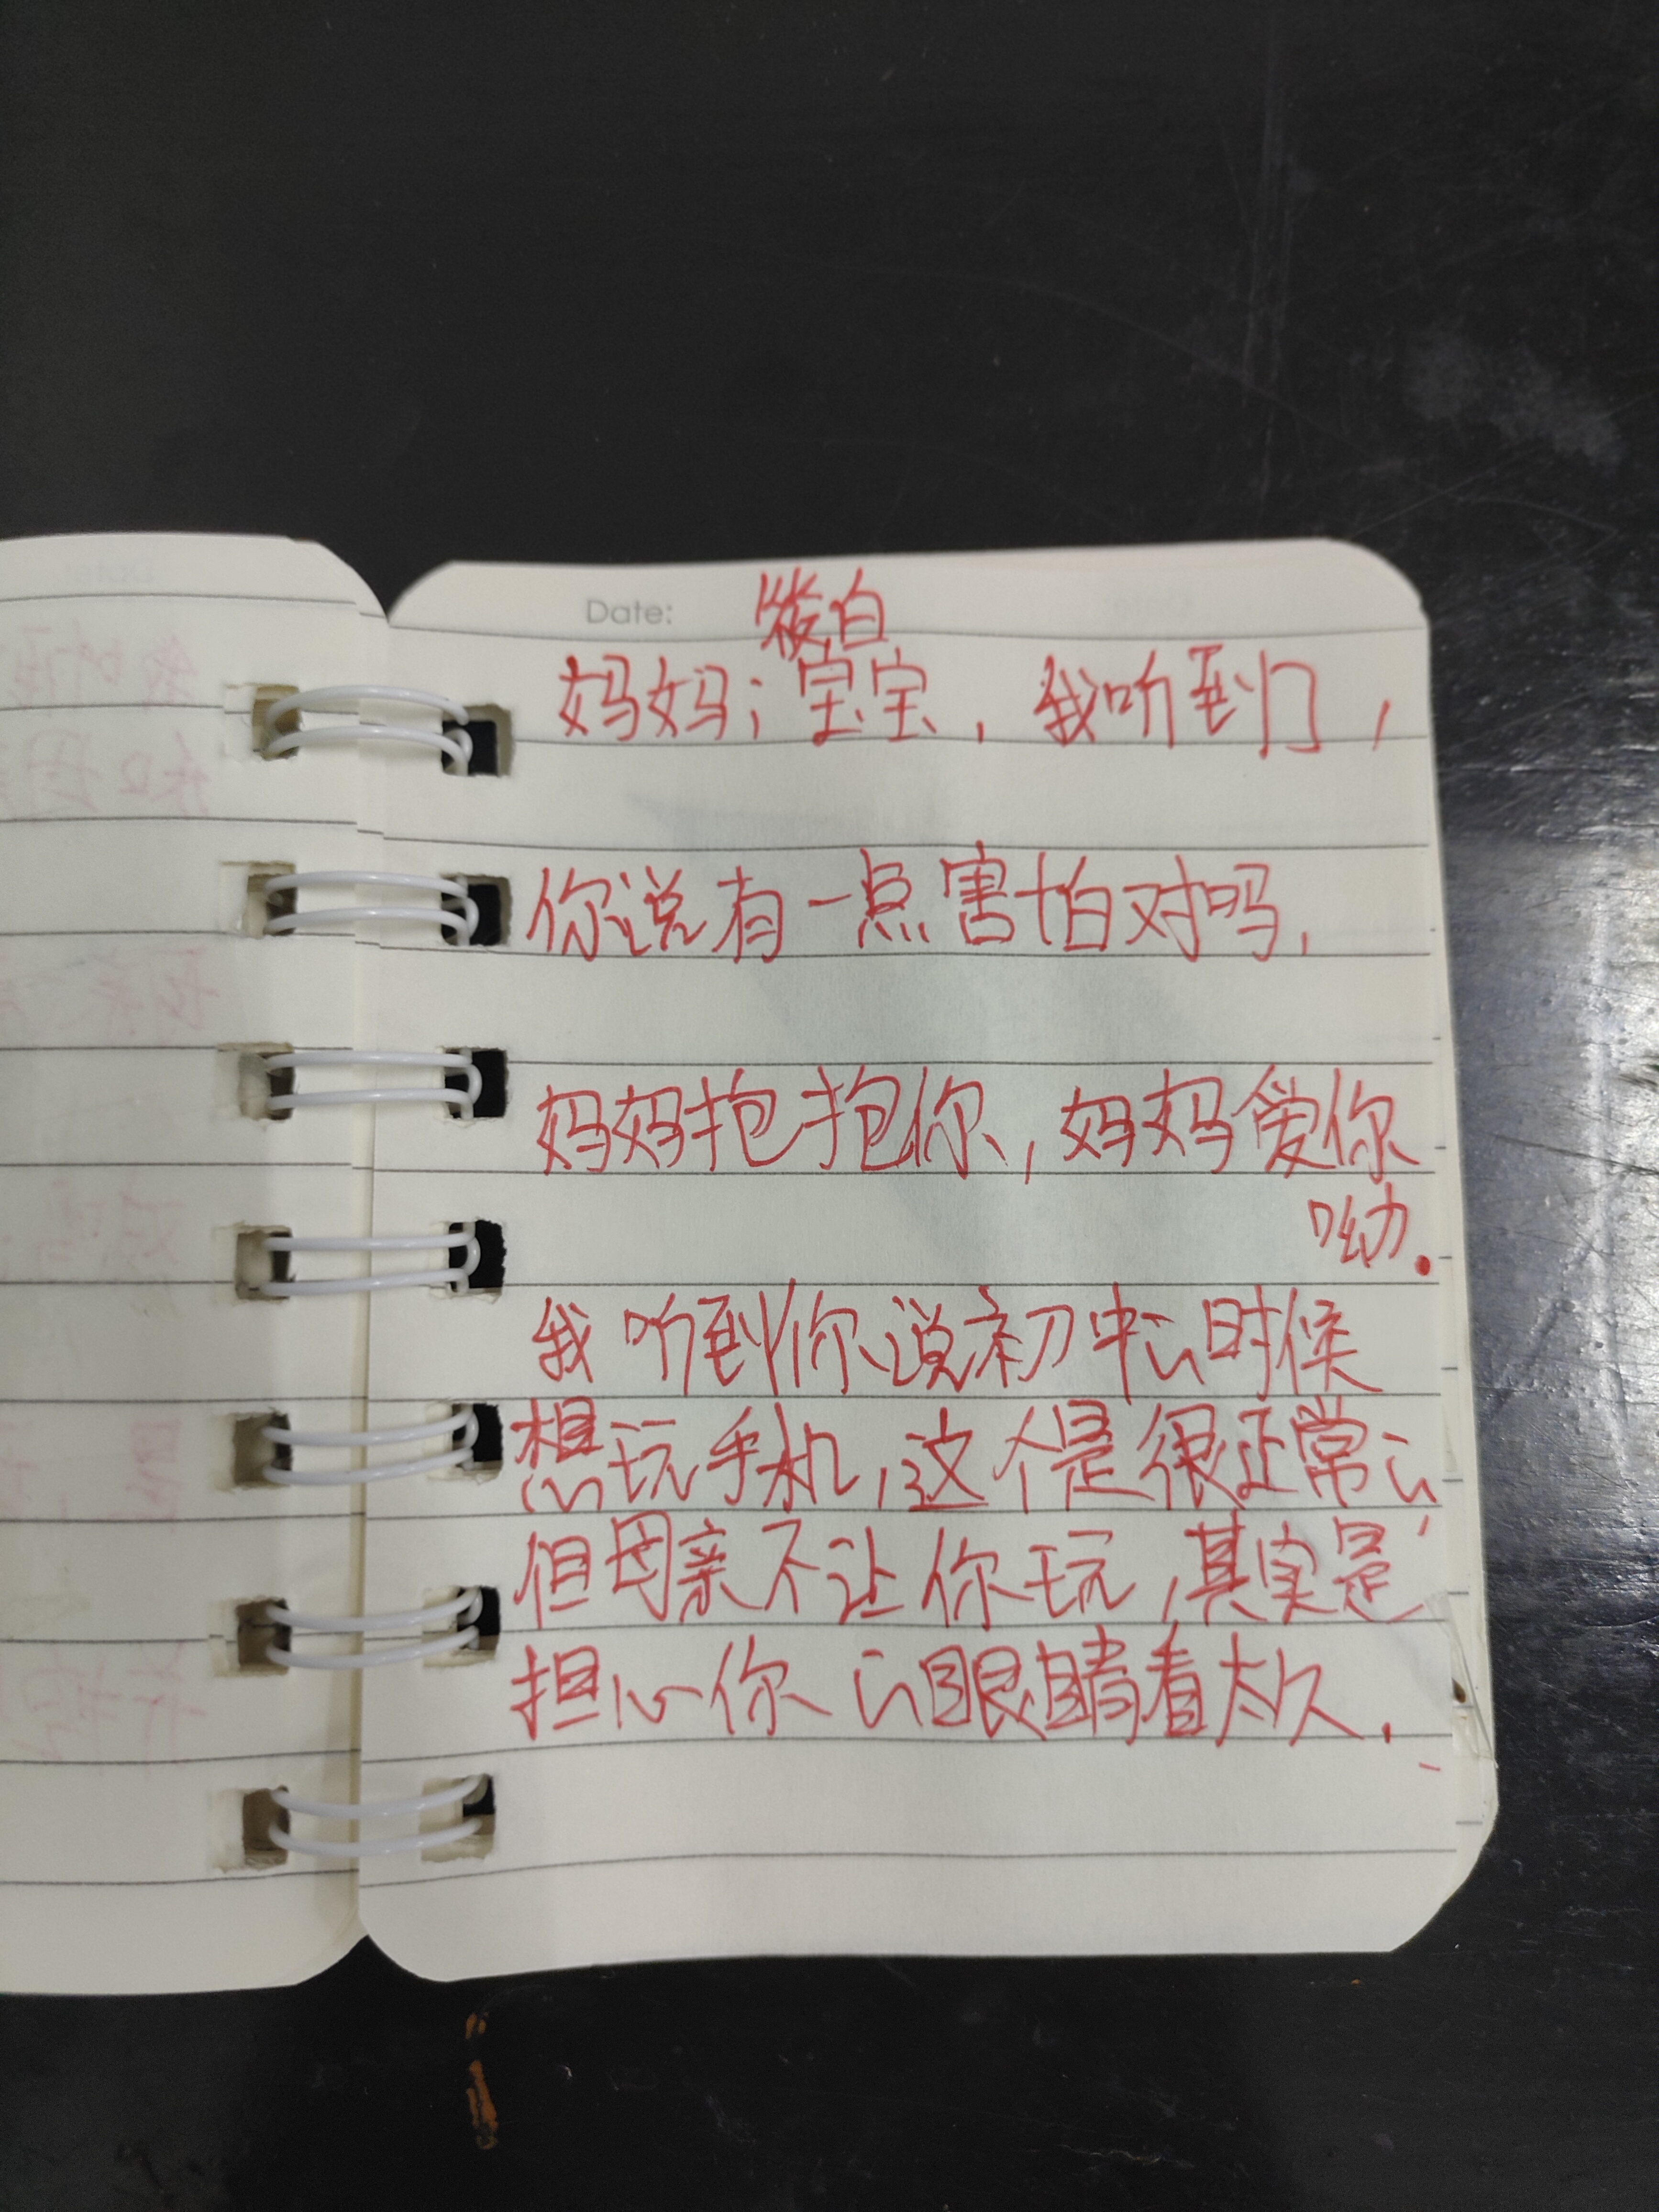 Date:
妈妈；宝宝，我听到了，
你说有一点害怕对吗，
妈妈抱抱你，妈妈爱你
呦.
我听到你说初中的时候
想玩手机，这个是很正常的，
但母亲不让你玩，其实是
担心你的眼睛看太久.